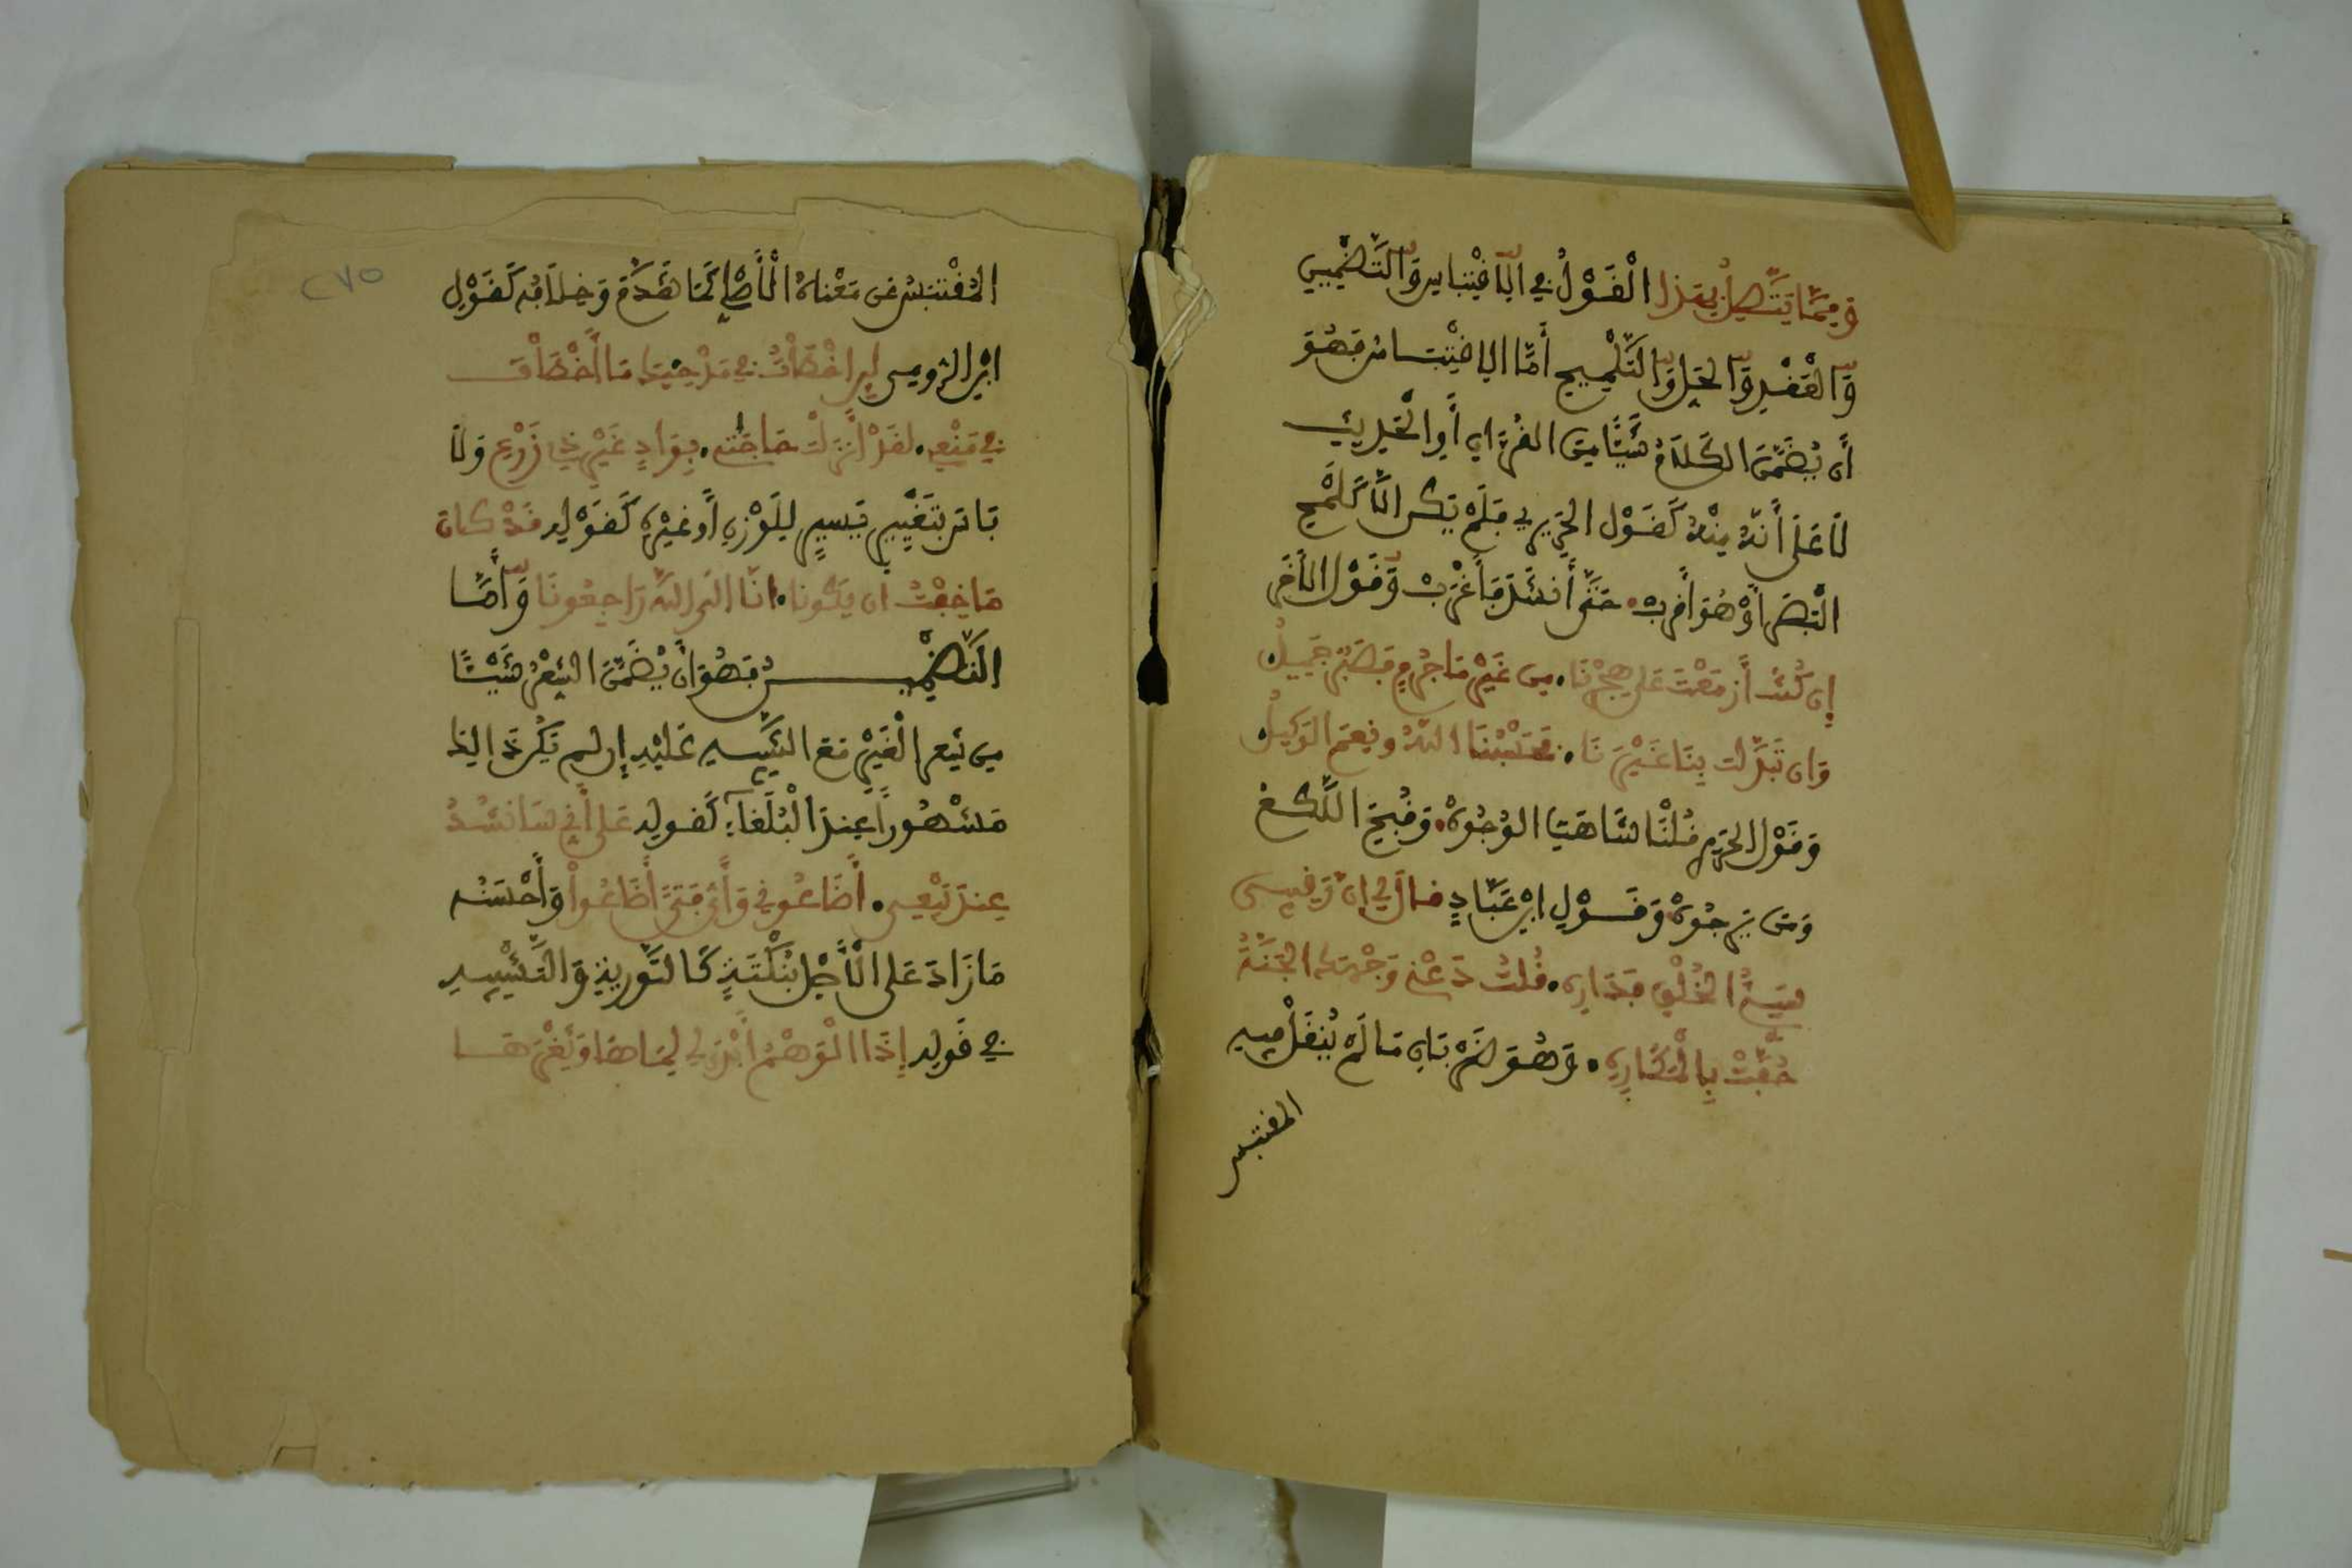 وَمِمَّا يَتَّصِلُ بِهَذَا الْقَوْلُ فِي الِاقْتِبَاسِ وَالتَّضْمِينِ
وَالْعَقْدِ وَالْحَلِّ وَالتَّلْمِيحِ أَمَّا الِاقْتِبَاسُ فَهُوَ
أَن يُضَمَّنَ الْكَلَامُ شَيْئًا مِنَ الْقُرْءَانِ أَوِ الْحَدِيثِ
لَا عَلَى أَنَّهُ مِنْهُ كَقَوْلِ الْحَرِيرِي فَلَمْ يَكُن إِلَّا كَلَمْحِ
الْبَصَرِ أَوْ هُوَ أَقْرَبُ. حَتَّى أَنشَدَ فَأَغْرَبْ وَقَوْلِ الْآخَرِ
إِن كُنْتَ أَزْمَعْتَ عَلَى هَجْرِنَا. مِن غَيْرِ مَا جُرْمٍ فَصَبْرٌ جَمِيلُ
وَإِن تَبَدَّلْتَ بِنَا غَيْرَنَا. فَحَسْبُنَا اللَّهُ وَنِعْمَ الْوَكِيلُ
وَقَوْلِ الْحَرِيرِي قُلْنَا شَاهَتِ الْوُجُوهْ. وَقُبِّحَ اللُّكَعُ
وَمَن يَرْجُوهْ وَقَوْلِ ابْنِ عَبَّادٍ قَالَ لِي إِنَّ رَقِيبِي
سَيِّئُ الْخُلْقِ فَدَارِهِ. قُلْتُ دَعْنِي وَجْهُكَ الْجَنَّةُ
حُفَّتْ بِالْمَكَارِهِ. وَهُوَ ضَرْبَانِ مَا لَمْ يُنقَلْ فِيهِ
المقتبس
الْمُقْتَبَسُ عَن مَعْنَاهُ الْأَصْلِي كَمَا تَقَدَّمَ وَخِلَافُهُ كَقَوْلِ
ابْنِ الرُّومِي لَئِن أَخْطَأْتُ فِي مَدْحِيكَ مَا أَخْطَأْتَ
فِي مَنْعِي. لَقَدْ أَنْزَلْتُ حَاجَتِي. بِوَادٍ غَيْرِ ذِي زَرْعِ وَلَا
بَأْسَ بِتَغْيِيرٍ يَسِيرٍ لِلْوَزْنِ أَوْ غَيْرِهِ كَقَوْلِهِ قَدْ كَانَ
مَا خِفْتُ أَن يَكُونَا. إِنَّا إِلَى اللَّهِ رَاجِعُونَا وَأَمَّا
التَّضْمِينُ فَهُوَ أَن يُضَمَّنَ الشِّعْرُ شَيْئًا
مِن شِعْرِ الْغَيْرِ مَعَ التَّنْبِيهِ عَلَيْهِ إِن لَم يَكُنْ ذَالِكَ
مَشْهُورًا عِندَ الْبُلَغَاءِ كَقَوْلِهِ عَلَى أَنِّي سَأُنشِدُ
عِندَ بَيْعِي. أَضَاعُونِي وَأَيَّ فَتًى أَضَاعُوا وَأَحْسَنُهُ
مَا زَادَ عَلَى الْأَصْلِ بِنُكْتَةٍ كَالتَّوْرِيَةِ وَالتَّشْبِيهِ
فِي قَوْلِهِ إِذَا الْوَهْمُ أَبْدَى لِي لَمَاهَا وَثَغْرَهَا